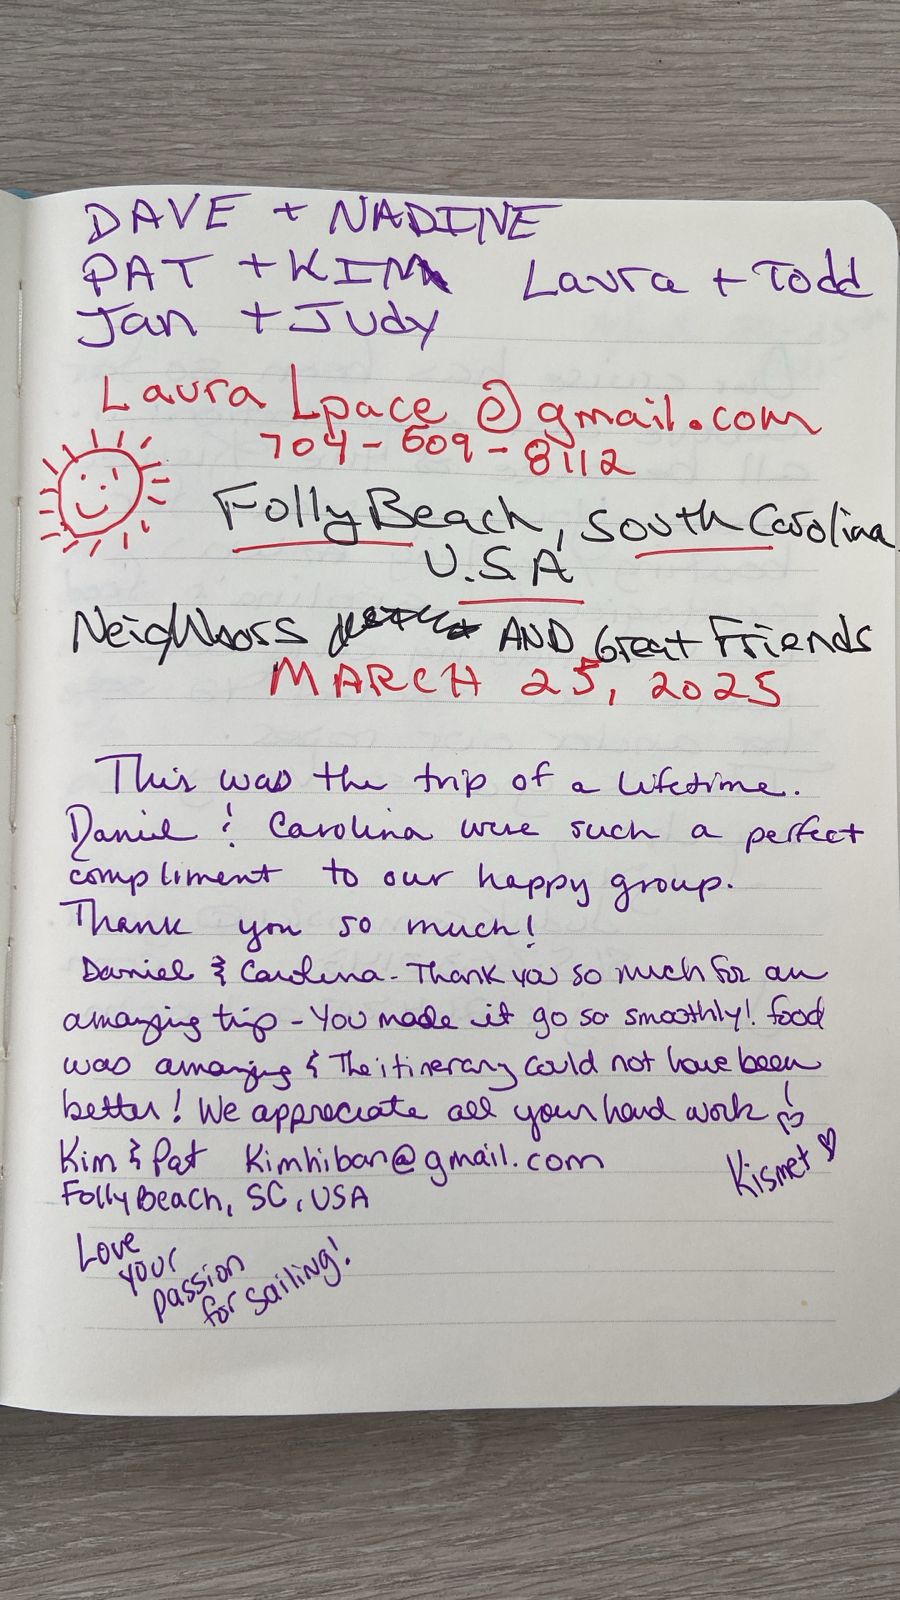 DAVE + NADINE
PAT + KIM Laura + Todd
Jan + Judy
Laura Lpace @ gmail.com
704-609-8112
Folly Beach, South Carolina
U.S.A
Neighbors AND Great Friends
MARCH 25, 2025
This was the trip of a lifetime.
Daniel & Carolina were such a perfect
compliment to our happy group.
Thank you so much!
Daniel & Carolina - Thank you so much for an
amazing trip - You made it go so smoothly! food
was amazing & The itinerary could not have been
better! We appreciate all your hard work!
Kim & Pat Kimhiban@gmail.com
Kismet
Folly Beach, SC, USA
Love
your
passion
for sailing!